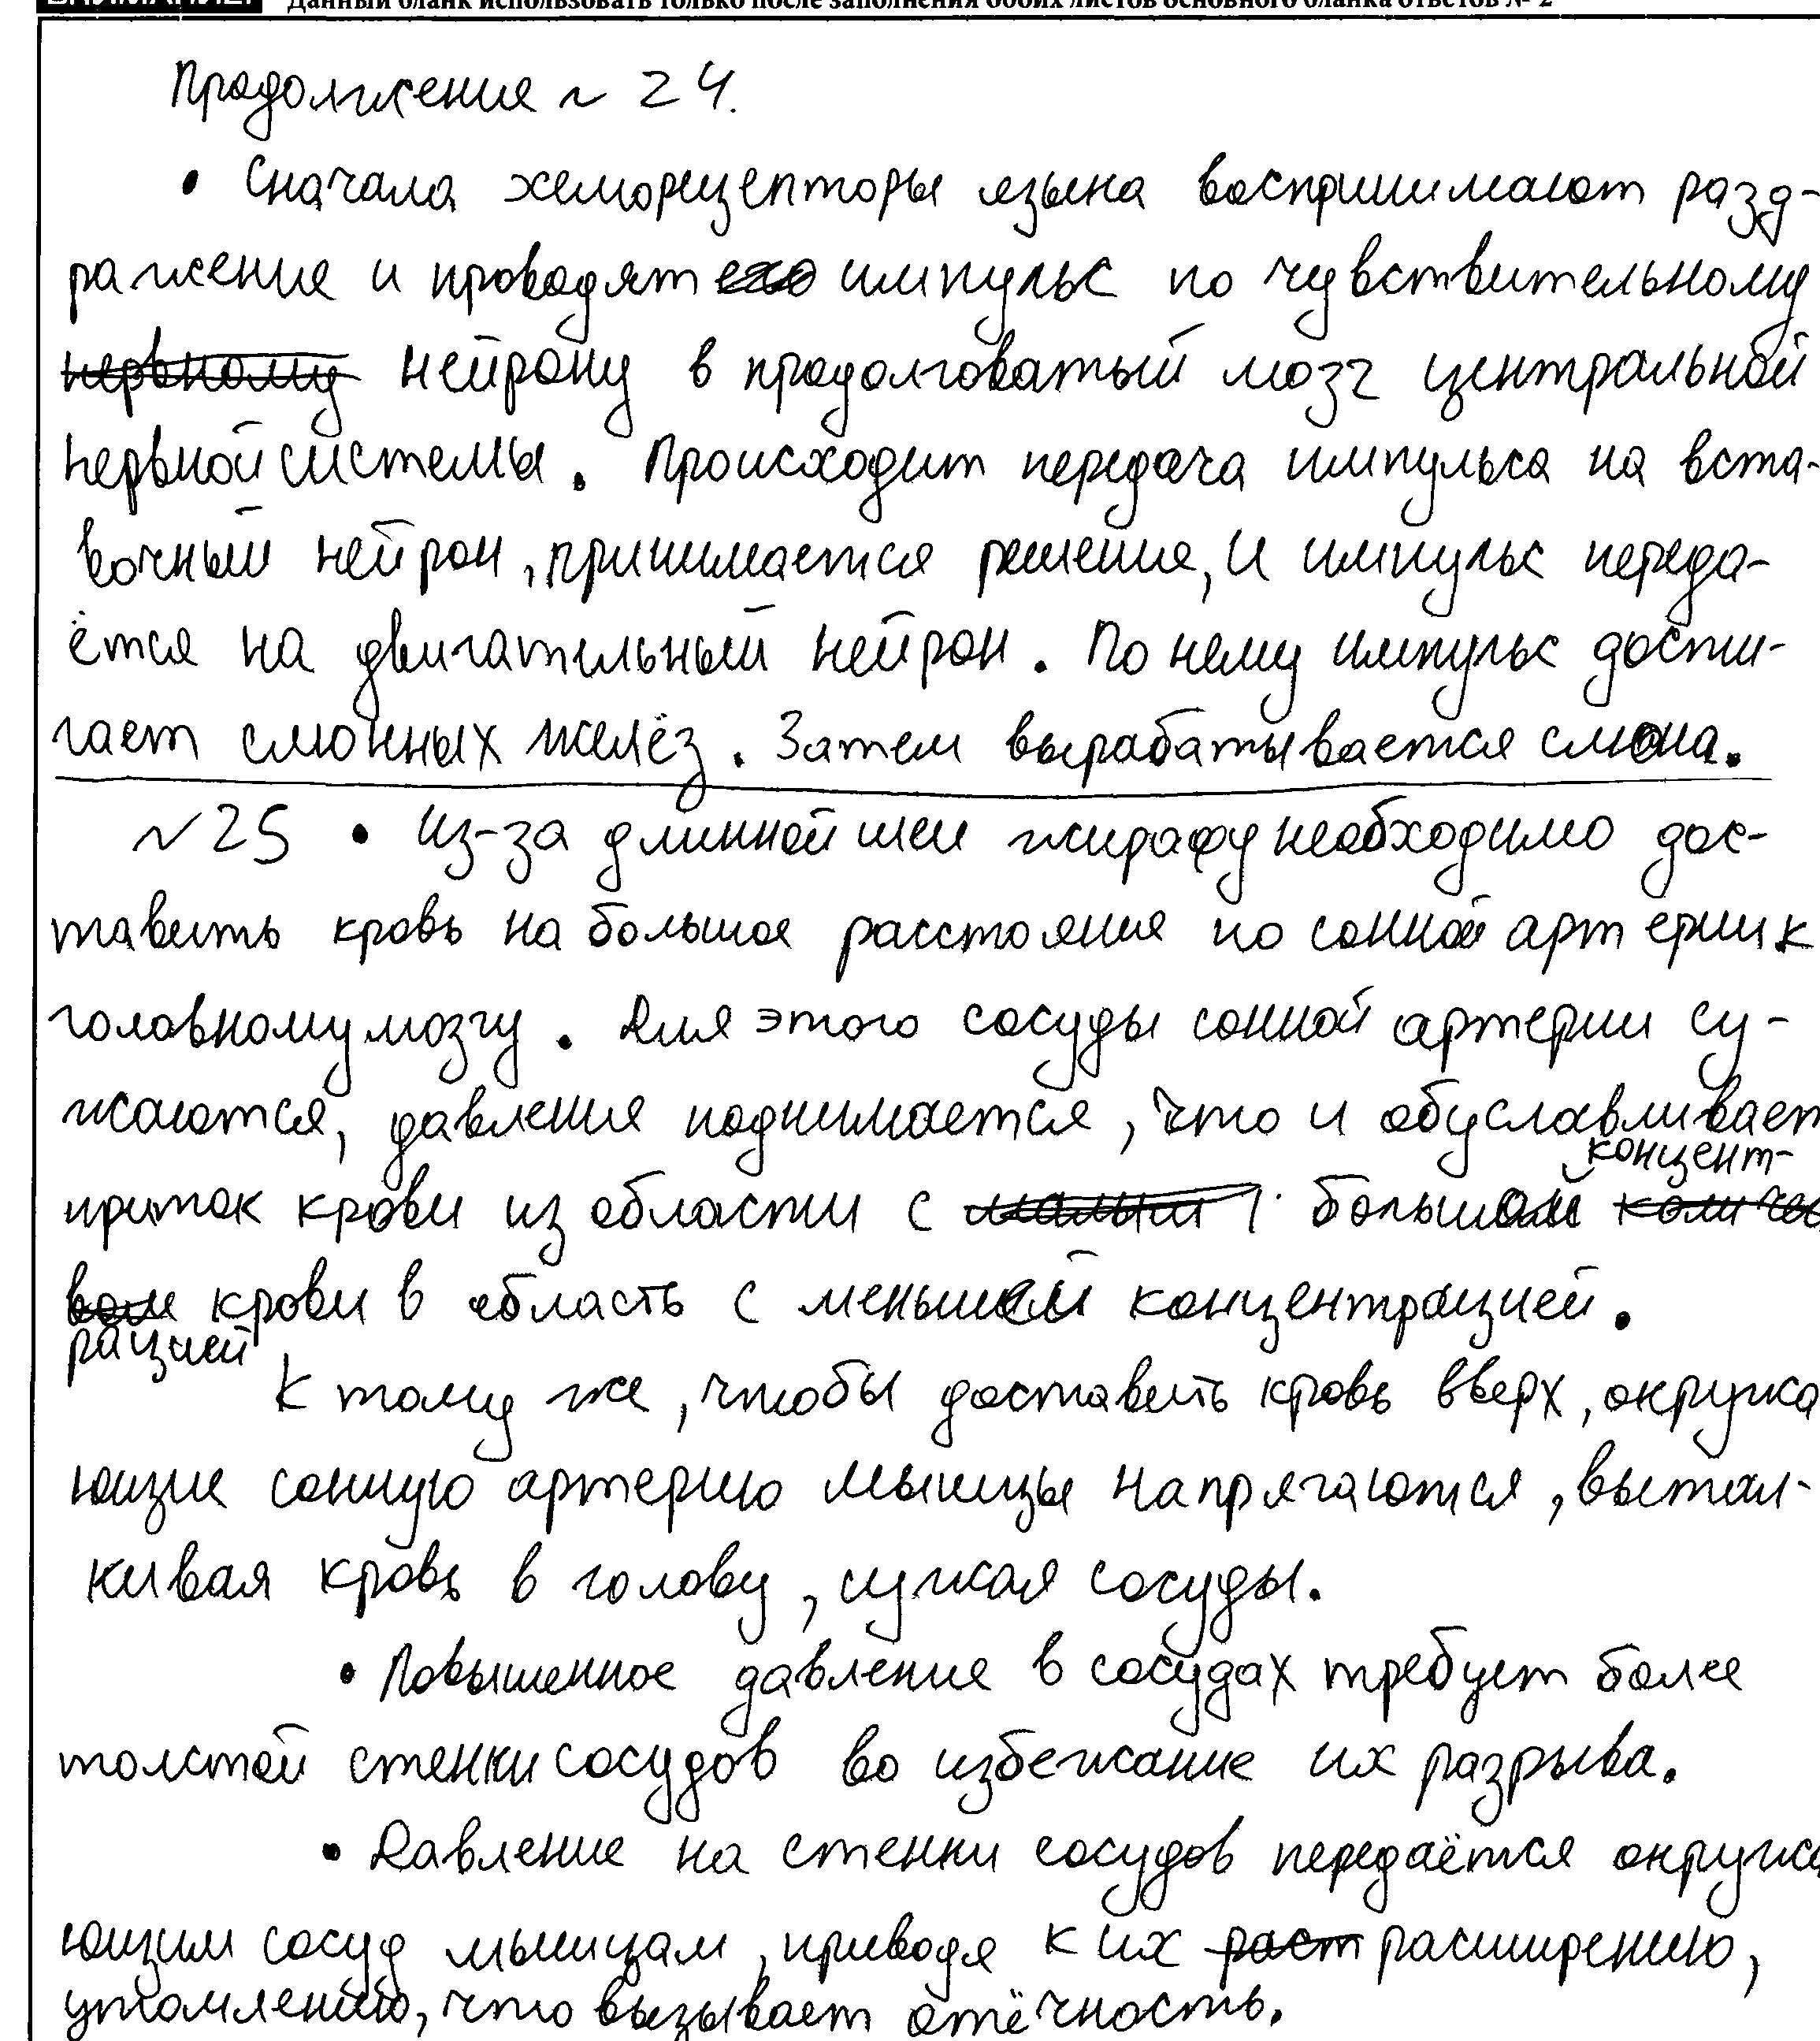 Данный бланк использовать только после заполнения обоих листов основного бланка ответов № 2
Продолжение ~ 24.
• Сначала хеморецепторы языка воспринимают разд-
ражение и проводят его импульс по чувствительному
нервному нейрону в продолговатый мозг центральной
нервной системы. Происходит передача импульса на вста-
вочный нейрон, принимается решение, и импульс переда-
ётся на двигательный нейрон. По нему импульс дости-
гает слюнных желёз. Затем вырабатывается слюна.
~ 25 • Из-за длинной шеи жирафу необходимо дос-
тавить кровь на большое расстояние по сонной артерии к
головному мозгу. Для этого сосуды сонной артерии су-
жаются, давление поднимается, что и обуславливает
концент-
приток крови из области с большей
крови в область с меньшей концентрацией.
рацией
К тому же, чтобы доставить кровь вверх, окружа
ющие сонную артерию мышцы напрягаются, вытал-
кивая кровь в голову, сужая сосуды.
• Повышенное давление в сосудах требует более
толстой стенки сосудов во избежание их разрыва.
• Давление на стенки сосудов передаётся окружа
ющим сосуд мышцам, приводя к их раст расширению,
утомлению, что вызывает отёчность.